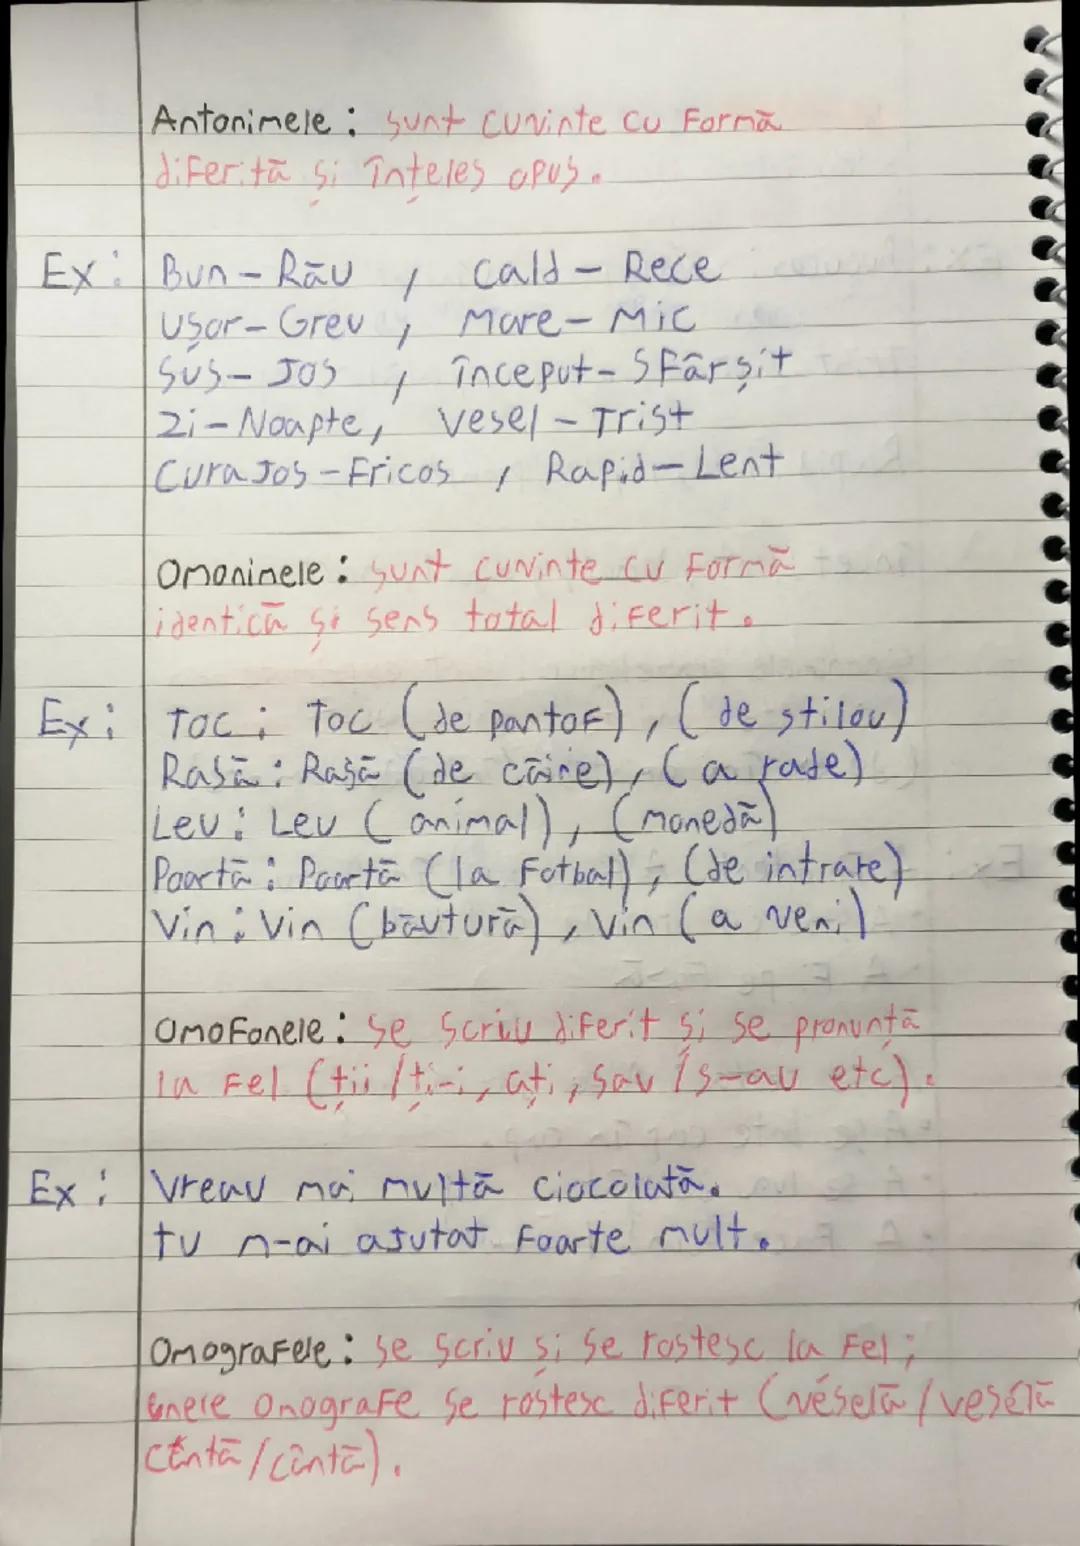 Antonimele: sunt cuvinte cu formă
diferită și înțeles opus.
Ex: Bun - Rău , Cald - Rece
Ușor - Greu , Mare - Mic
Sus - Jos , început - Sfârșit
Zi - Noapte, Vesel - Trist
Curajos - Fricos , Rapid - Lent
Omonimele: sunt cuvinte cu formă
identică și sens total diferit.
Ex: Toc: Toc (de pantof), (de stilou)
Rasă: Rasă (de câine), (a rade)
Leu: Leu (animal), (monedă)
Poartă: Poartă (la fotbal), (de intrare)
Vin: Vin (băutură), Vin (a veni)
Omofonele: se scriu diferit și se pronunță
la fel (ții / ți-i, ați, sau / s-au etc).
Ex: Vreau mai multă ciocolată.
tu m-ai ajutat foarte mult.
Omografele: se scriu și se rostesc la fel;
unele omografe se rostesc diferit (véselă / vesélă
cântă / cântă).